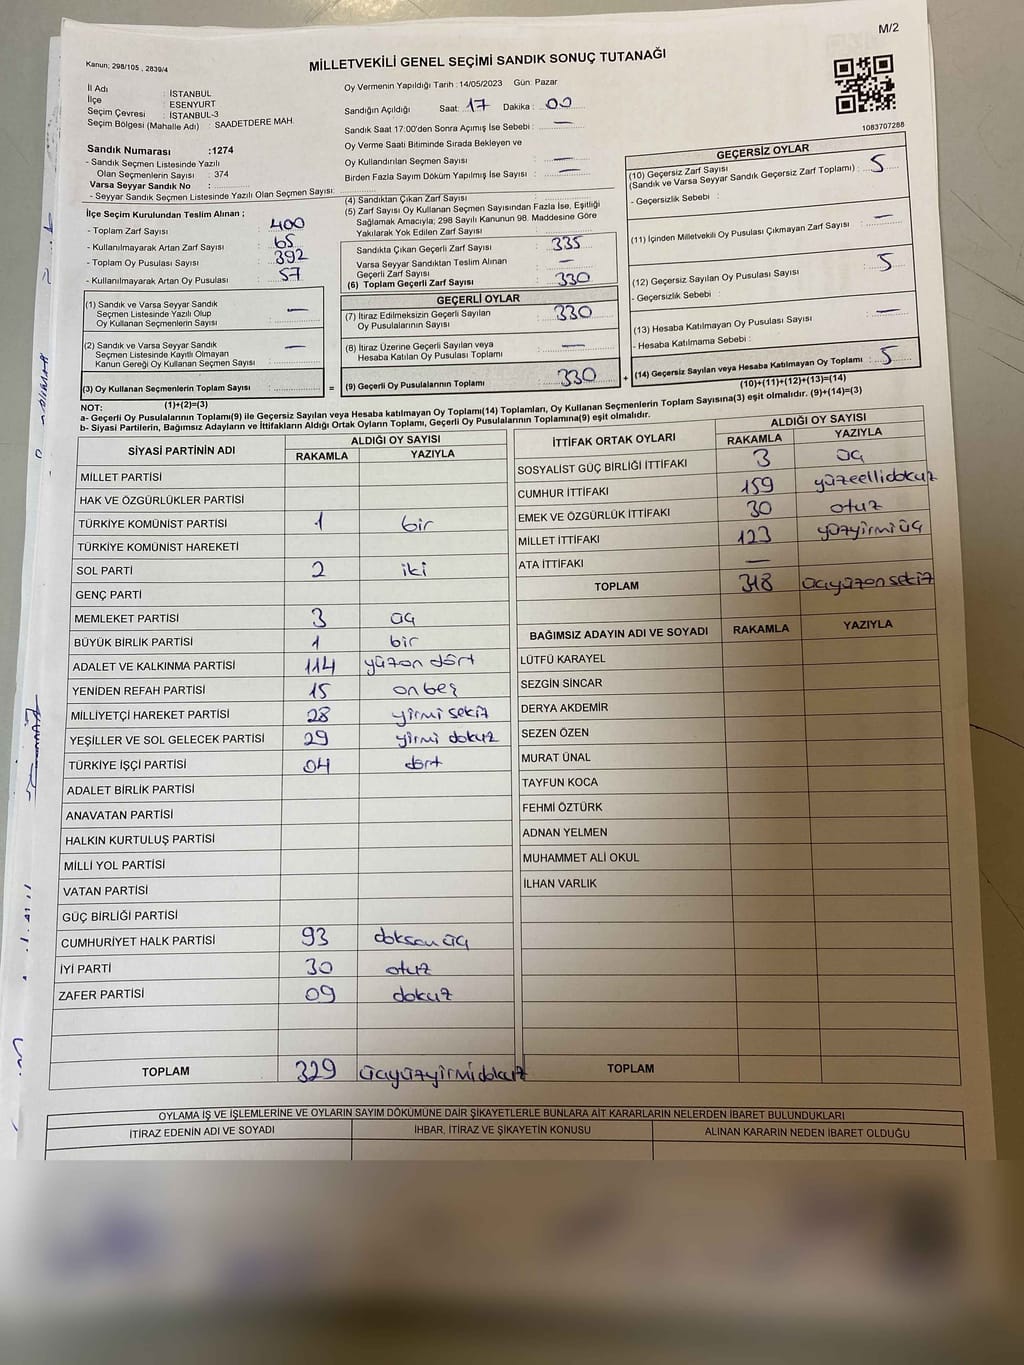 M/2
Kanun; 298/105 , 2839/4
MİLLETVEKİLİ GENEL SEÇİMİ SANDIK SONUÇ TUTANAĞI
İl Adı : İSTANBUL
İlçe : ESENYURT
Seçim Çevresi : İSTANBUL-3
Seçim Bölgesi (Mahalle Adı) : SAADETDERE MAH.
Oy Vermenin Yapıldığı Tarih : 14/05/2023 Gün: Pazar
Sandığın Açıldığı Saat: 17 Dakika : 00
Sandık Saat 17:00'den Sonra Açımış İse Sebebi : —
Oy Verme Saati Bitiminde Sırada Bekleyen ve
Oy Kullandırılan Seçmen Sayısı : —
Birden Fazla Sayım Döküm Yapılmış İse Sayısı : —
1083707288
Sandık Numarası :1274
- Sandık Seçmen Listesinde Yazılı
Olan Seçmenlerin Sayısı : 374
Varsa Seyyar Sandık No :
- Seyyar Sandık Seçmen Listesinde Yazılı Olan Seçmen Sayısı:
İlçe Seçim Kurulundan Teslim Alınan ;
- Toplam Zarf Sayısı : 400
- Kullanılmayarak Artan Zarf Sayısı : 65
- Toplam Oy Pusulası Sayısı : 392
- Kullanılmayarak Artan Oy Pusulası : 57
(1) Sandık ve Varsa Seyyar Sandık
Seçmen Listesinde Yazılı Olup
Oy Kullanan Seçmenlerin Sayısı : —
(2) Sandık ve Varsa Seyyar Sandık
Seçmen Listesinde Kayıtlı Olmayan
Kanun Gereği Oy Kullanan Seçmen Sayısı : —
(3) Oy Kullanan Seçmenlerin Toplam Sayısı : =
(1)+(2)=(3)
(4) Sandıktan Çıkan Zarf Sayısı :
(5) Zarf Sayısı Oy Kullanan Seçmen Sayısından Fazla İse, Eşitliği
Sağlamak Amacıyla; 298 Sayılı Kanunun 98. Maddesine Göre
Yakılarak Yok Edilen Zarf Sayısı :
Sandıkta Çıkan Geçerli Zarf Sayısı : 335
Varsa Seyyar Sandıktan Teslim Alınan
Geçerli Zarf Sayısı : —
(6) Toplam Geçerli Zarf Sayısı : 330
GEÇERLİ OYLAR
(7) İtiraz Edilmeksizin Geçerli Sayılan
Oy Pusulalarının Sayısı : 330
(8) İtiraz Üzerine Geçerli Sayılan veya
Hesaba Katılan Oy Pusulası Toplamı : —
(9) Geçerli Oy Pusulalarının Toplamı : 330 +
GEÇERSİZ OYLAR
(10) Geçersiz Zarf Sayısı
(Sandık ve Varsa Seyyar Sandık Geçersiz Zarf Toplamı) : 5
- Geçersizlik Sebebi :
(11) İçinden Milletvekili Oy Pusulası Çıkmayan Zarf Sayısı : —
(12) Geçersiz Sayılan Oy Pusulası Sayısı : 5
- Geçersizlik Sebebi :
(13) Hesaba Katılmayan Oy Pusulası Sayısı : —
- Hesaba Katılmama Sebebi :
(14) Geçersiz Sayılan veya Hesaba Katılmayan Oy Toplamı : 5
(10)+(11)+(12)+(13)=(14)
NOT:
a- Geçerli Oy Pusulalarının Toplamı(9) ile Geçersiz Sayılan veya Hesaba katılmayan Oy Toplamı(14) Toplamları, Oy Kullanan Seçmenlerin Toplam Sayısına(3) eşit olmalıdır. (9)+(14)=(3)
b- Siyasi Partilerin, Bağımsız Adayların ve İttifakların Aldığı Ortak Oyların Toplamı, Geçerli Oy Pusulalarının Toplamına(9) eşit olmalıdır.
SİYASİ PARTİNİN ADI ALDIĞI OY SAYISI
RAKAMLA YAZIYLA
MİLLET PARTİSİ
HAK VE ÖZGÜRLÜKLER PARTİSİ
TÜRKİYE KOMÜNİST PARTİSİ 1 bir
TÜRKİYE KOMÜNİST HAREKETİ
SOL PARTİ 2 iki
GENÇ PARTİ
MEMLEKET PARTİSİ 3 üç
BÜYÜK BİRLİK PARTİSİ 1 bir
ADALET VE KALKINMA PARTİSİ 114 yüzon dört
YENİDEN REFAH PARTİSİ 15 onbeş
MİLLİYETÇİ HAREKET PARTİSİ 28 yirmi sekiz
YEŞİLLER VE SOL GELECEK PARTİSİ 29 yirmi dokuz
TÜRKİYE İŞÇİ PARTİSİ 04 dört
ADALET BİRLİK PARTİSİ
ANAVATAN PARTİSİ
HALKIN KURTULUŞ PARTİSİ
MİLLİ YOL PARTİSİ
VATAN PARTİSİ
GÜÇ BİRLİĞİ PARTİSİ
CUMHURİYET HALK PARTİSİ 93 doksan üç
İYİ PARTİ 30 otuz
ZAFER PARTİSİ 09 dokuz
TOPLAM 329 üçyüzyirmidokuz
İTTİFAK ORTAK OYLARI ALDIĞI OY SAYISI
RAKAMLA YAZIYLA
SOSYALİST GÜÇ BİRLİĞİ İTTİFAKI 3 üç
CUMHUR İTTİFAKI 159 yüzellidokuz
EMEK VE ÖZGÜRLÜK İTTİFAKI 30 otuz
MİLLET İTTİFAKI 123 yüzyirmiüç
ATA İTTİFAKI —
TOPLAM 318 üçyüzonsekiz
BAĞIMSIZ ADAYIN ADI VE SOYADI RAKAMLA YAZIYLA
LÜTFÜ KARAYEL
SEZGİN SİNCAR
DERYA AKDEMİR
SEZEN ÖZEN
MURAT ÜNAL
TAYFUN KOCA
FEHMİ ÖZTÜRK
ADNAN YELMEN
MUHAMMET ALİ OKUL
İLHAN VARLIK
TOPLAM
OYLAMA İŞ VE İŞLEMLERİNE VE OYLARIN SAYIM DÖKÜMÜNE DAİR ŞİKAYETLERLE BUNLARA AİT KARARLARIN NELERDEN İBARET BULUNDUKLARI
İTİRAZ EDENİN ADI VE SOYADI İHBAR, İTİRAZ VE ŞİKAYETİN KONUSU ALINAN KARARIN NEDEN İBARET OLDUĞU